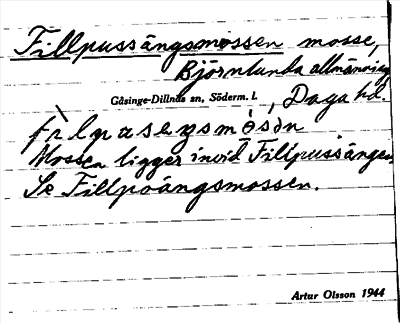 Fillpussängsmossen mosse,
Björnlunda allmänning
Gåsinge-Dillnäs sn, Söderm. l. , Daga hd.
Mossen ligger invid Fillpussängen
Se Fillpoängsmossen.
Artur Olsson 1944